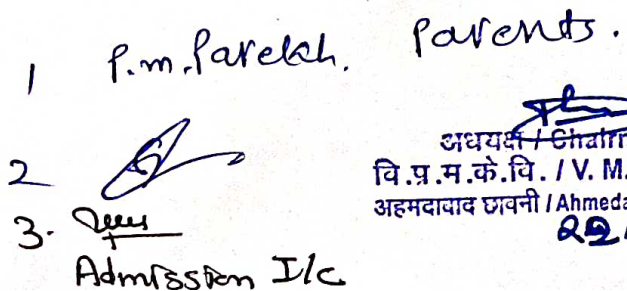 1 P.m. Parekh. Parents.
2
3.
Admission I/c
अध्यक्ष / Chairm
वि.प्र.म.के.वि. / V. M.
अहमदावाद छावनी / Ahmeda
22/